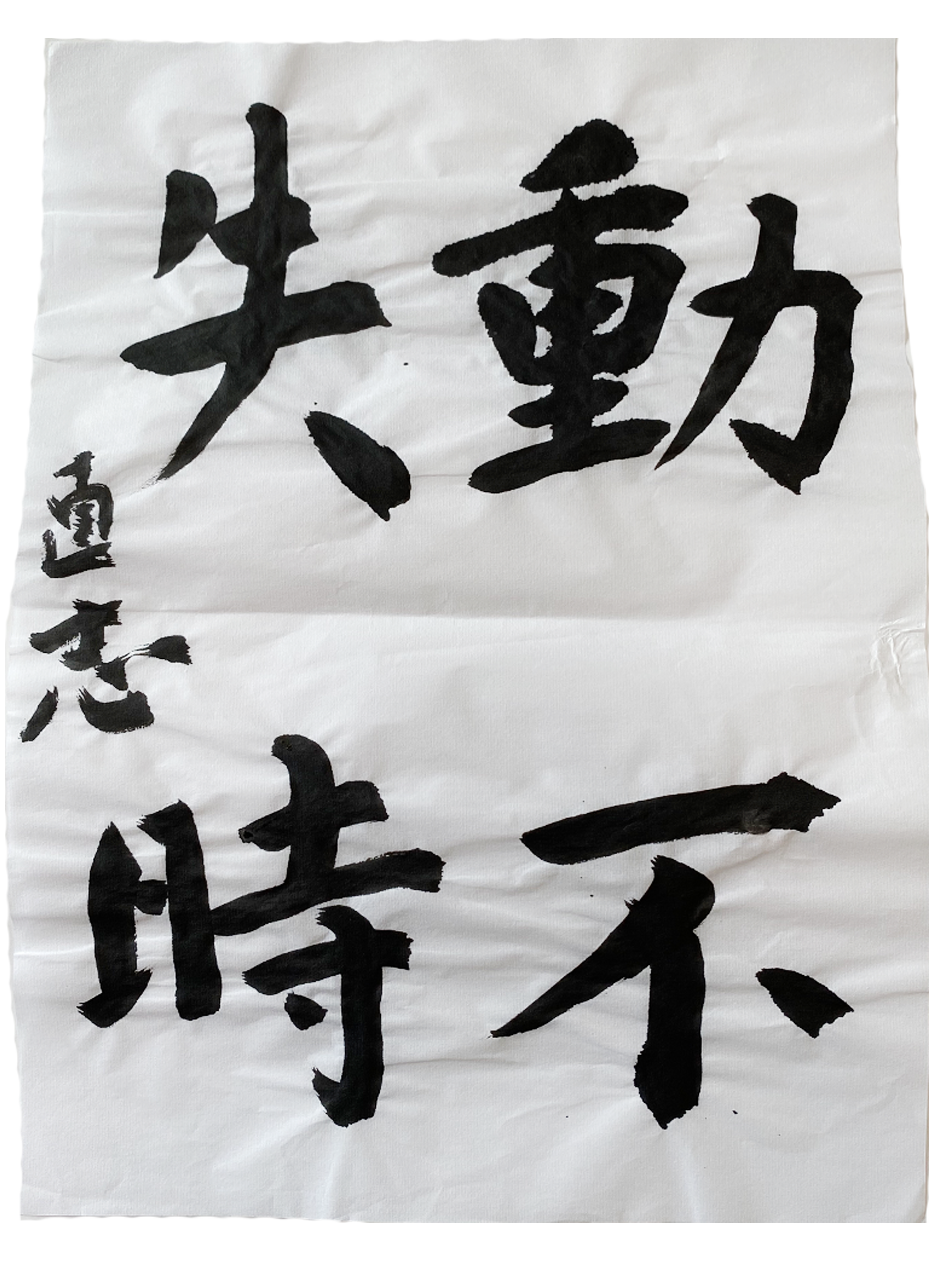 動不
失時
直志